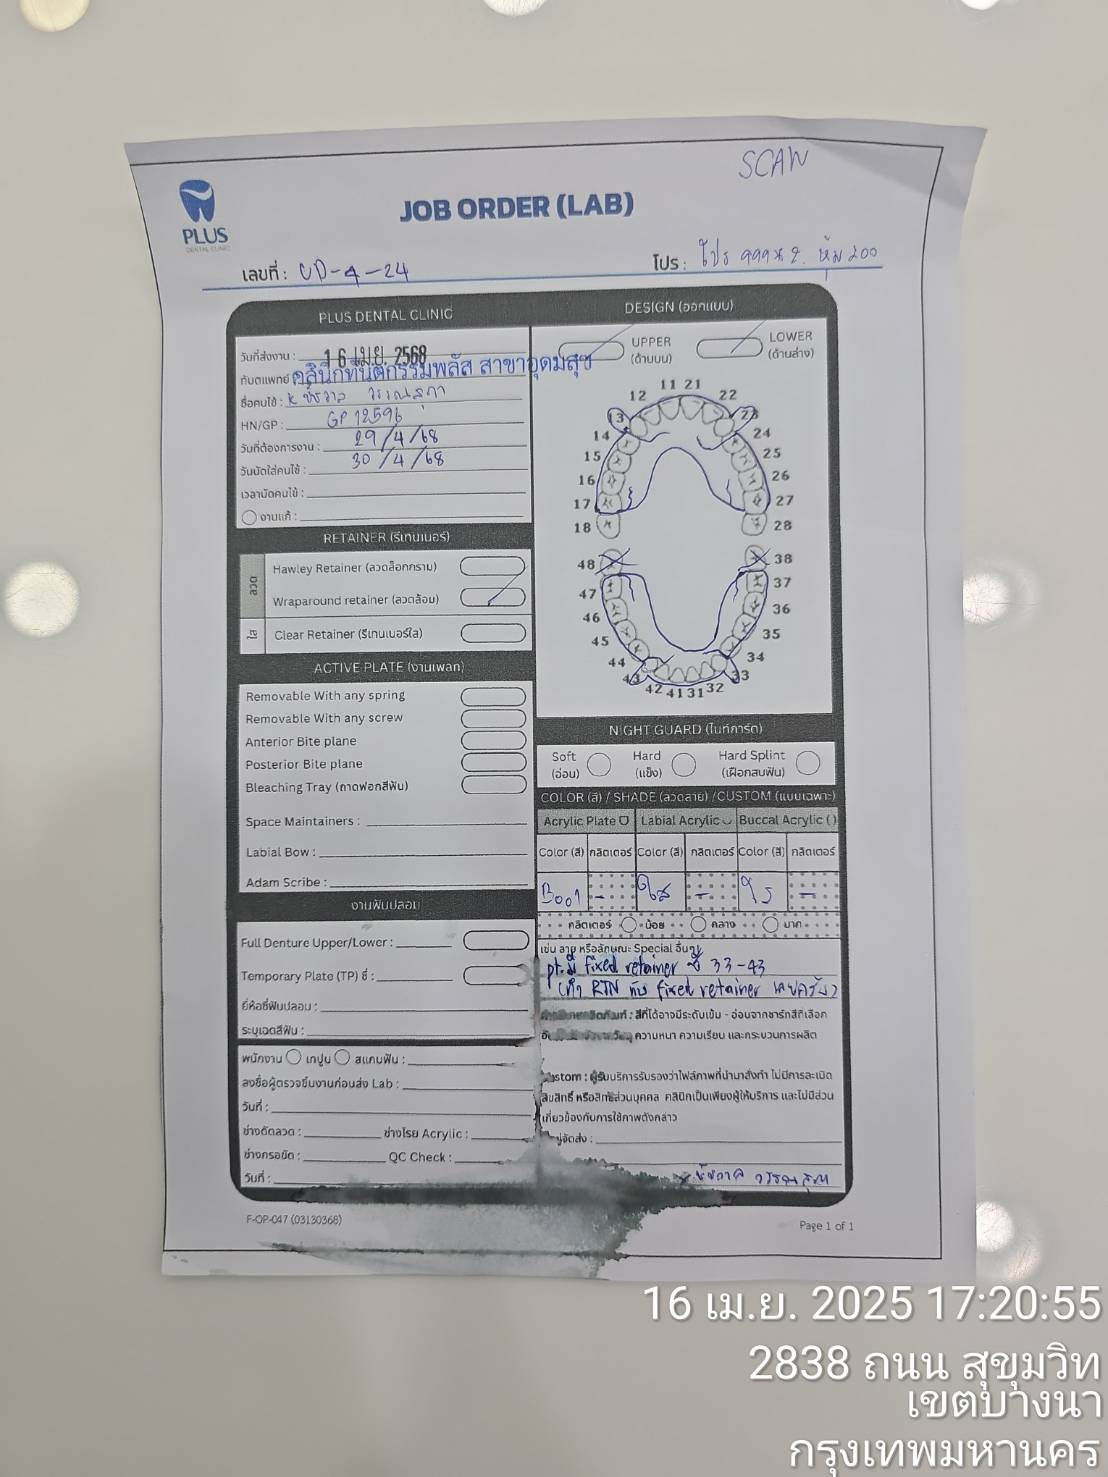 SCAN
PLUS
DENTAL CLINIC
JOB ORDER (LAB)
เลขที่ : UD-4-24
โปร : โปร 999 x 2.
PLUS DENTAL CLINIC
วันที่ส่งงาน : 16 เม.ย. 2568
ทันตแพทย์
คลินิกทันตกรรมพลัส สาขาอุดมสุข
ชื่อคนไข้ :
HN/GP : GP 12596
วันที่ต้องการงาน : 29/4/68
วันนัดใส่คนไข้ : 30/4/68
เวลานัดคนไข้ :
งานแก้ :
RETAINER (รีเทนเนอร์)
ลวด
Hawley Retainer (ลวดล็อกกราม)
Wraparound retainer (ลวดล้อม)
ใส
Clear Retainer (รีเทนเนอร์ใส)
ACTIVE PLATE (งานเพลท)
Removable With any spring
Removable With any screw
Anterior Bite plane
Posterior Bite plane
Bleaching Tray (ถาดฟอกสีฟัน)
Space Maintainers :
Labial Bow :
Adam Scribe :
งานฟันปลอม
Full Denture Upper/Lower :
Temporary Plate (TP) ซี่ :
ยี่ห้อซี่ฟันปลอม :
ระบุเฉดสีฟัน :
พนักงาน เทปูน สแกนฟัน :
ลงชื่อผู้ตรวจชิ้นงานก่อนส่ง Lab :
วันที่ :
ช่างดัดลวด : ช่างโรย Acrylic :
ช่างกรอขัด : QC Check :
วันที่ :
DESIGN (ออกแบบ)
UPPER
(ด้านบน)
LOWER
(ด้านล่าง)
11 21
12 22
13 23
14 24
15 25
16 26
17 27
18 28
48 38
47 37
46 36
45 35
44 34
43 33
42 41 31 32
NIGHT GUARD (ไนท์การ์ด)
Soft
(อ่อน)
Hard
(แข็ง)
Hard Splint
(เฝือกสบฟัน)
COLOR (สี) / SHADE (ลวดลาย) /CUSTOM (แบบเฉพาะ)
Acrylic Plate Labial Acrylic Buccal Acrylic ( )
Color (สี) กลิตเตอร์ Color (สี) กลิตเตอร์ Color (สี) กลิตเตอร์
B001 - ใส - -
กลิตเตอร์ น้อย กลาง มาก
เช่น ลาย หรือลักษณะ Special อื่นๆ
pt. มี fixed retainer ซี่ 33-43
(ทำ RTN ทับ fixed retainer เลยครับ)
สีที่ได้อาจมีระดับเข้ม - อ่อนจากชาร์ทสีที่เลือก
ความหนา ความเรียบ และกระบวนการผลิต
ผู้รับบริการรับรองว่าไฟล์ภาพที่นำมาสั่งทำ ไม่มีการละเมิด
ลิขสิทธิ์ หรือสิทธิส่วนบุคคล คลินิกเป็นเพียงผู้ให้บริการ และไม่มีส่วน
เกี่ยวข้องกับการใช้ภาพดังกล่าว
ผู้จัดส่ง :
F-OP-047 (03130368)
Page 1 of 1
16 เม.ย. 2025 17:20:55
2838 ถนน สุขุมวิท
เขตบางนา
กรุงเทพมหานคร